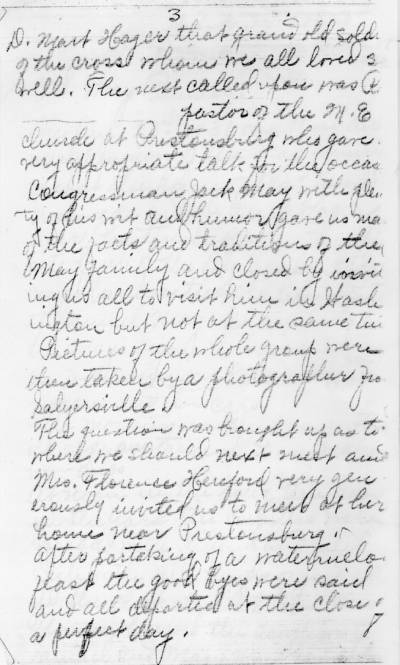 3
D. Mart Hager that grand old sold
of the cross whom we all loved s
well. The next called upon was R
pastor of the M. E
church at Prestonsburg who gave
very appropriate talk for the occas
Congressman Jack May with plen
ty of his wit and humor gave us ma
of the facts and traditions of the
May family and closed by invit
ing us all to visit him in Wash
ington but not at the same tim
Pictures of the whole group were
then taken by a photographer fro
Salyersville.
The question was brought up as to
where we should next meet and
Mrs. Florence Hereford very gen
erously invited us to meet at her
home near Prestonsburg.
After partaking of a watermelo
feast the good byes were said
and all departed at the close o
a perfect day.